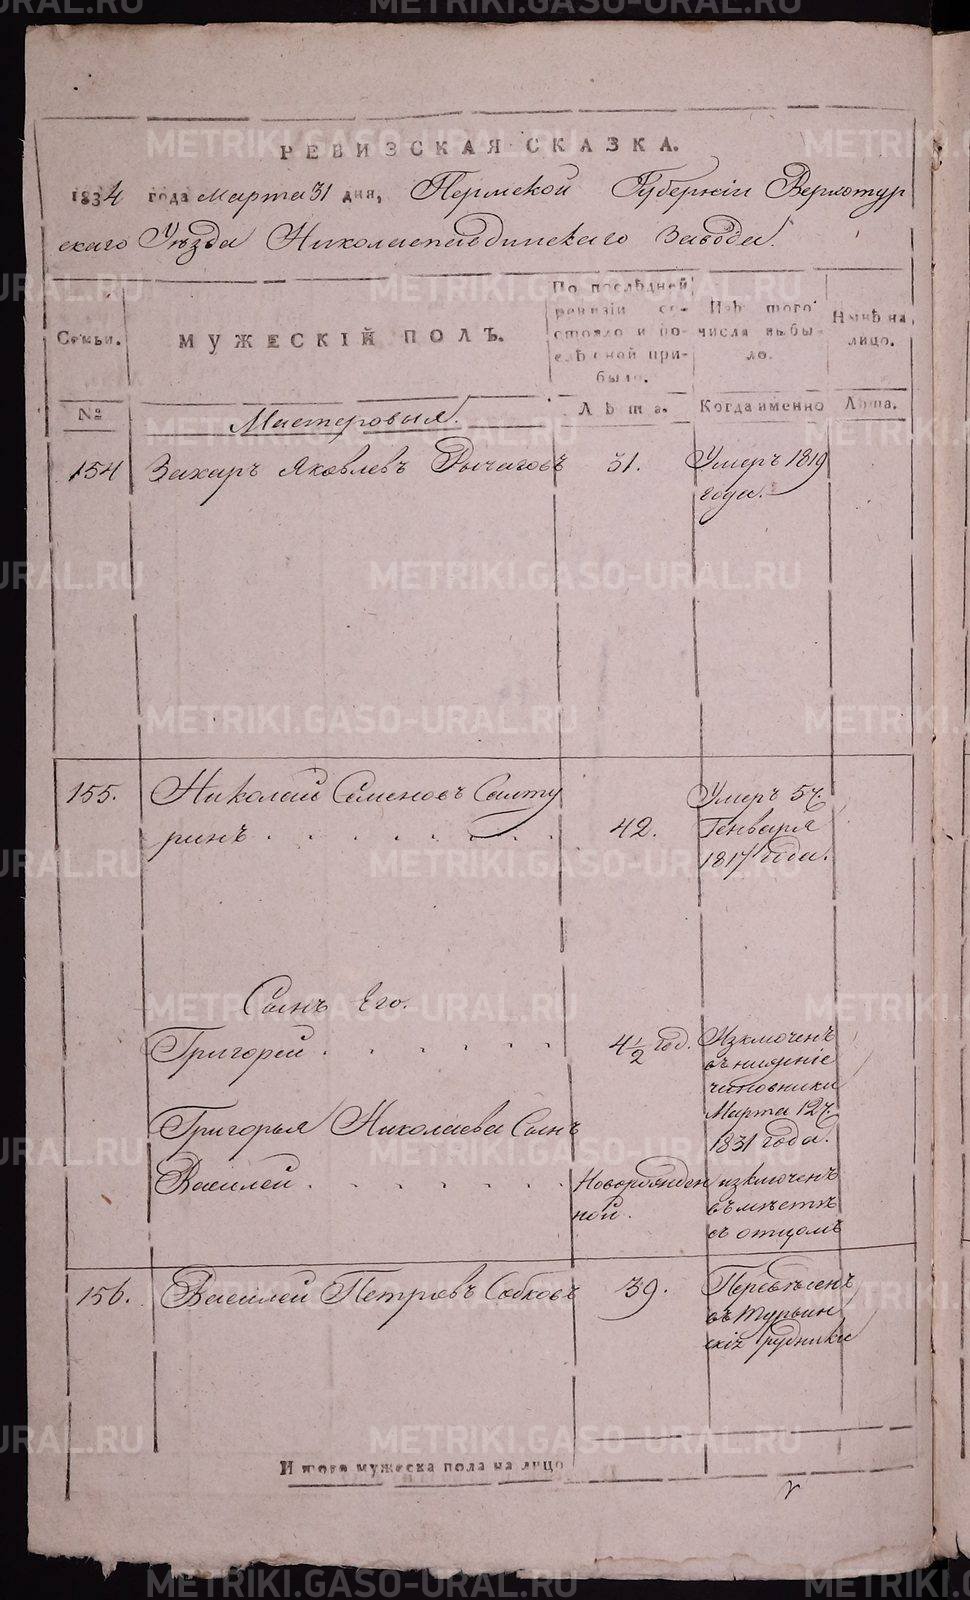 РЕВИЗСКАЯ СКАЗКА.
1834 года Марта 31 дня, Пермской Губернии Верхотур
скаго Уезда Николаепавдинскаго Завода.
Семьи.
МУЖЕСКІЙ ПОЛЪ.
По послѣдней ревизіи состояло и послѣ оной прибыло.
Изъ того числа выбыло.
Нынѣ на лицо.
№
Мастеровыя.
Лѣта.
Когда именно
Лѣта.
154 Захаръ Яковлевъ Рычаговъ 31. Умеръ 1819
года.
155. Николай Семеновъ Салту
ринъ 42.
Умеръ 5ч.
Генваря
1817 года.
Сынъ Его.
Григорей 4½ год. Изключенъ
въ нисшіе
чиновники
Григорья Николаева Сынъ
Марта 12ч.
1831 года.
Василей Новорожден
ной.
изключенъ
въ мѣстѣ
съ отцомъ
156. Василей Петровъ Собковъ 39. Переведенъ
въ Турьин
скіе рудники
Итого мужеска пола на лицо
METRIKI.GASO-URAL.RU